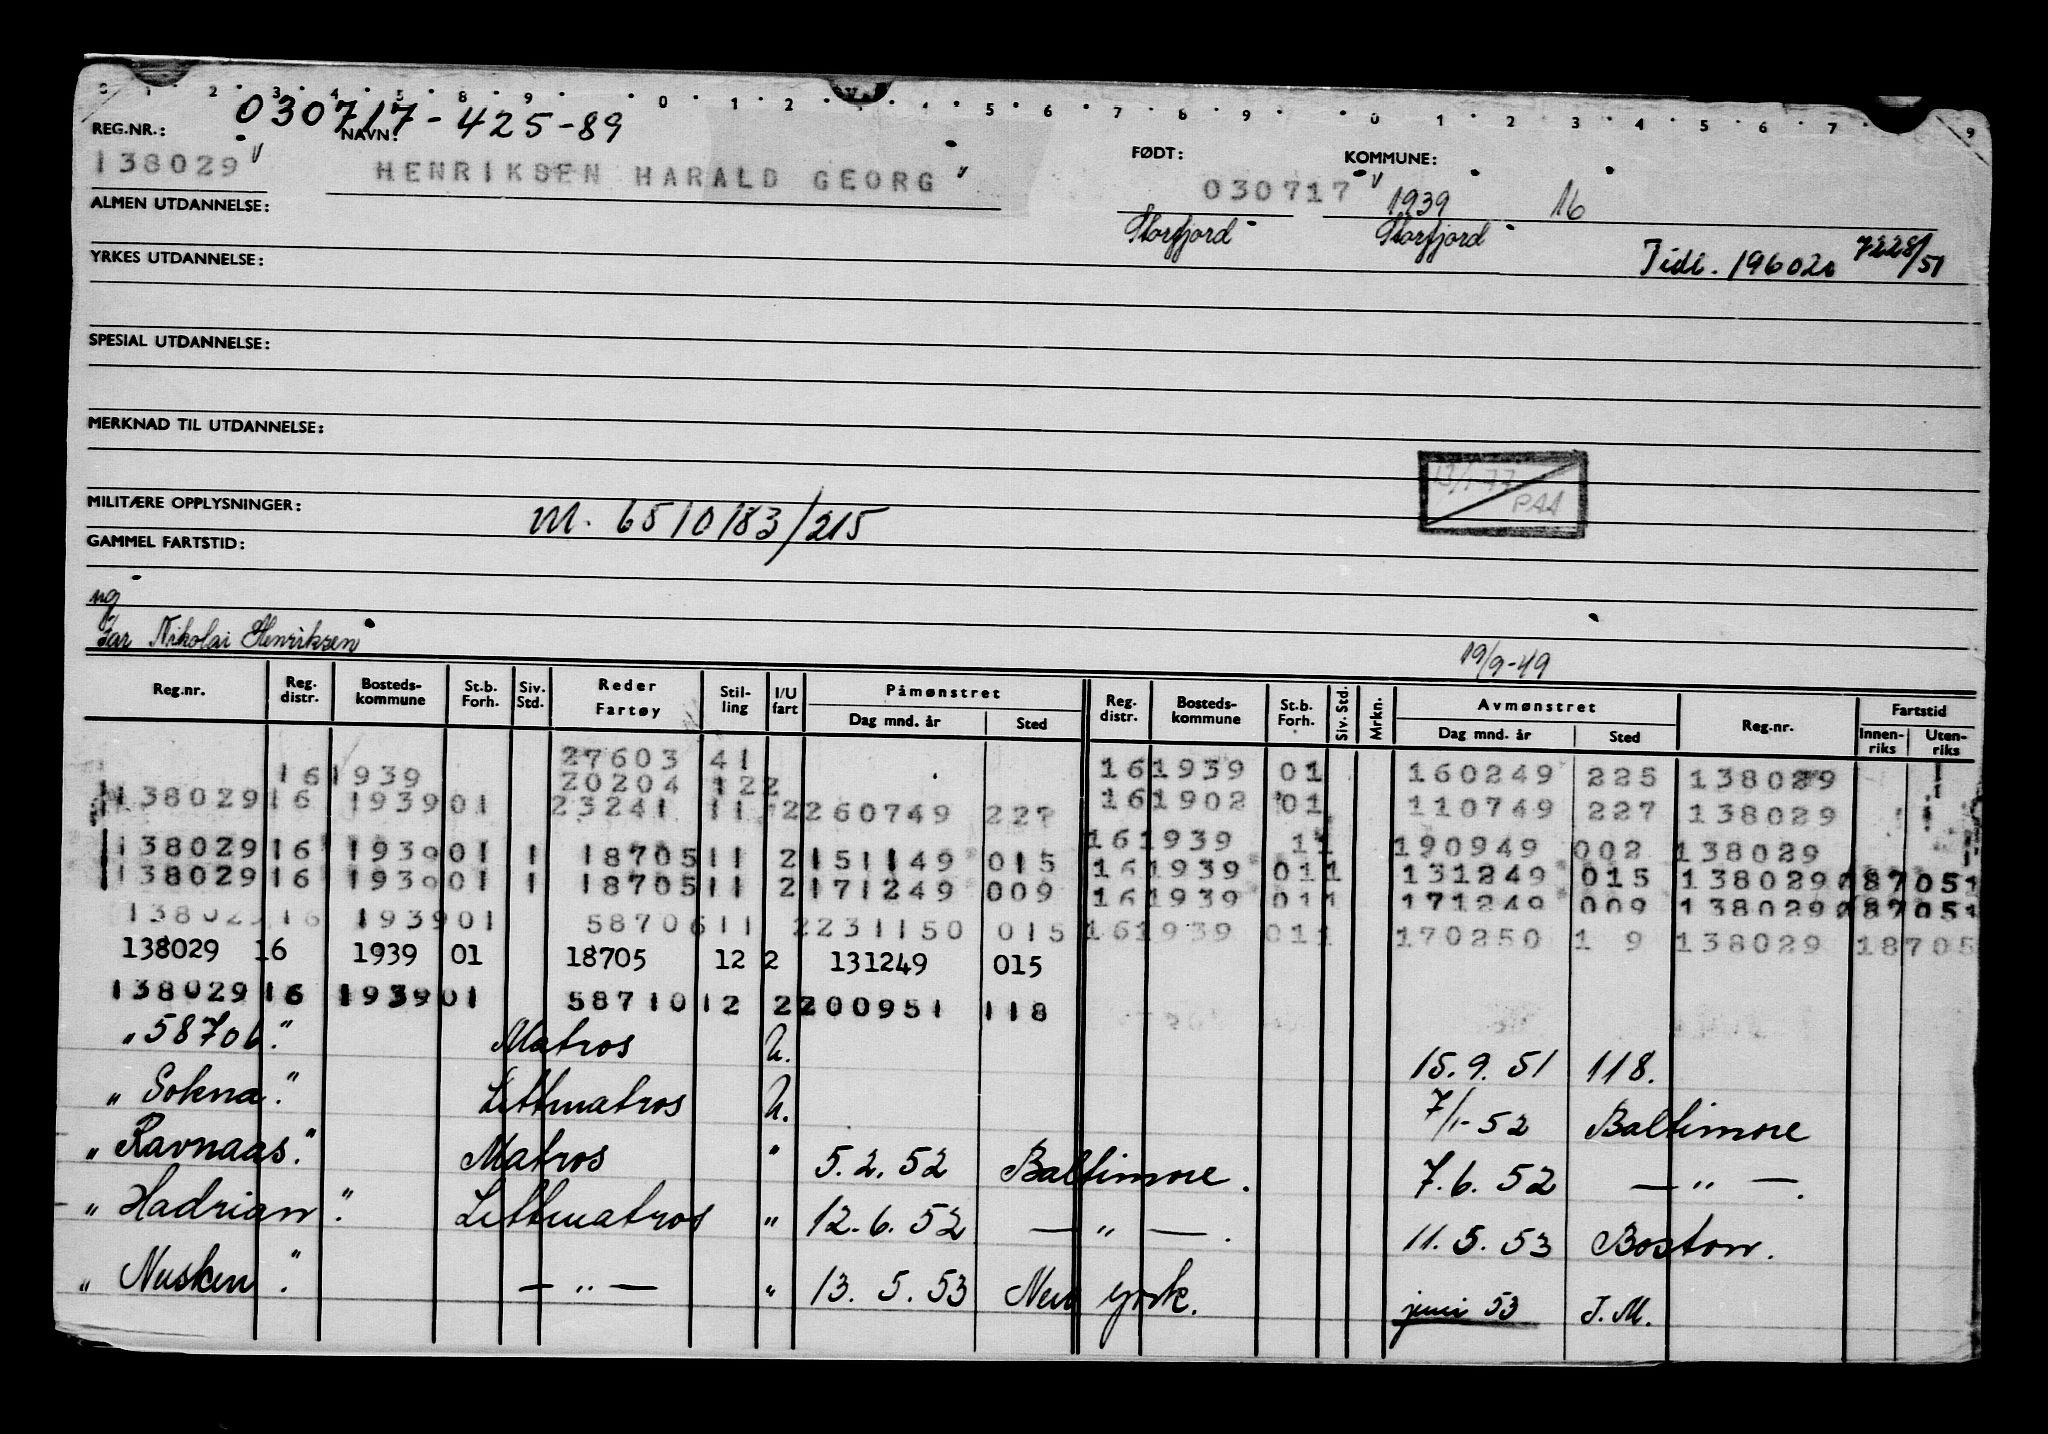 030717-425-89
REG.NR.: NAVN: FØDT: KOMMUNE:
138029 HENRIKSEN HARALD GEORG 030717 1939 16
ALMEN UTDANNELSE: Storfjord Storfjord
YRKES UTDANNELSE: Tidl. 196020 7228/51
SPESIAL UTDANNELSE:
MERKNAD TIL UTDANNELSE:
13/1-77 PAA
MILITÆRE OPPLYSNINGER: M. 6510183/215
GAMMEL FARTSTID:
ug
Far Nikolai Henriksen
19/9-49
Reg.nr. Reg. distr. Bosteds-kommune St.b. Forh. Siv. Std. Reder Fartøy Stil-ling I/U fart Påmønstret Dag mnd. år Sted Reg. distr. Bosteds-kommune St.b. Forh. Siv. Std. Mrkn. Avmønstret Dag mnd. år Sted Reg.nr. Fartstid Innen-riks Uten-riks
27603 41 161939 01 160249 225 138029
161939 20204 122 161902 01 110749 227 138029
138029 16 1939 01 23241 11 2 260749 227 161939 11 190949 002 138029
138029 16 1939 01 1 18705 11 2 151149 015 161939 011 131249 015 138029 187051
138029 16 1939 01 1 18705 11 2 171249 009 161939 011 171249 009 138029 187051
138029 16 1939 01 58706 11 2 231150 015 161939 011 170250 1 9 138029 18705
138029 16 1939 01 18705 12 2 131249 015
138029 16 1939 01 58710 12 2 200951 118
"58706" Matros U. 15.9.51 118.
"Sokna" Lettmatros U. 7/1-52 Baltimore
"Ravnaas" Matros " 5.2.52 Baltimore. 7.6.52 — " —.
"Hadrian" Lettmatros " 12.6.52 — " —. 11.5.53 Boston.
"Nusken" — " — " 13.5.53 New York. juni 53 I.M.